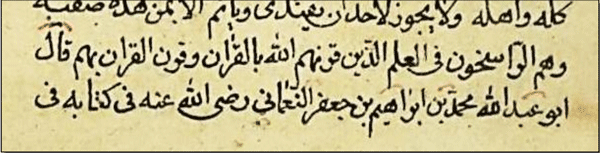 كله واهله ولا يجوز لاحد ان يقتدى وياتم الا بمن هذه صفته
وهم الراسخون فى العلم الذين قرنهم الله بالقرآن وقرن القران بهم قال
ابو عبد الله محمد بن ابراهيم بن جعفر النعمانى رضى الله عنه فى كتابه فى